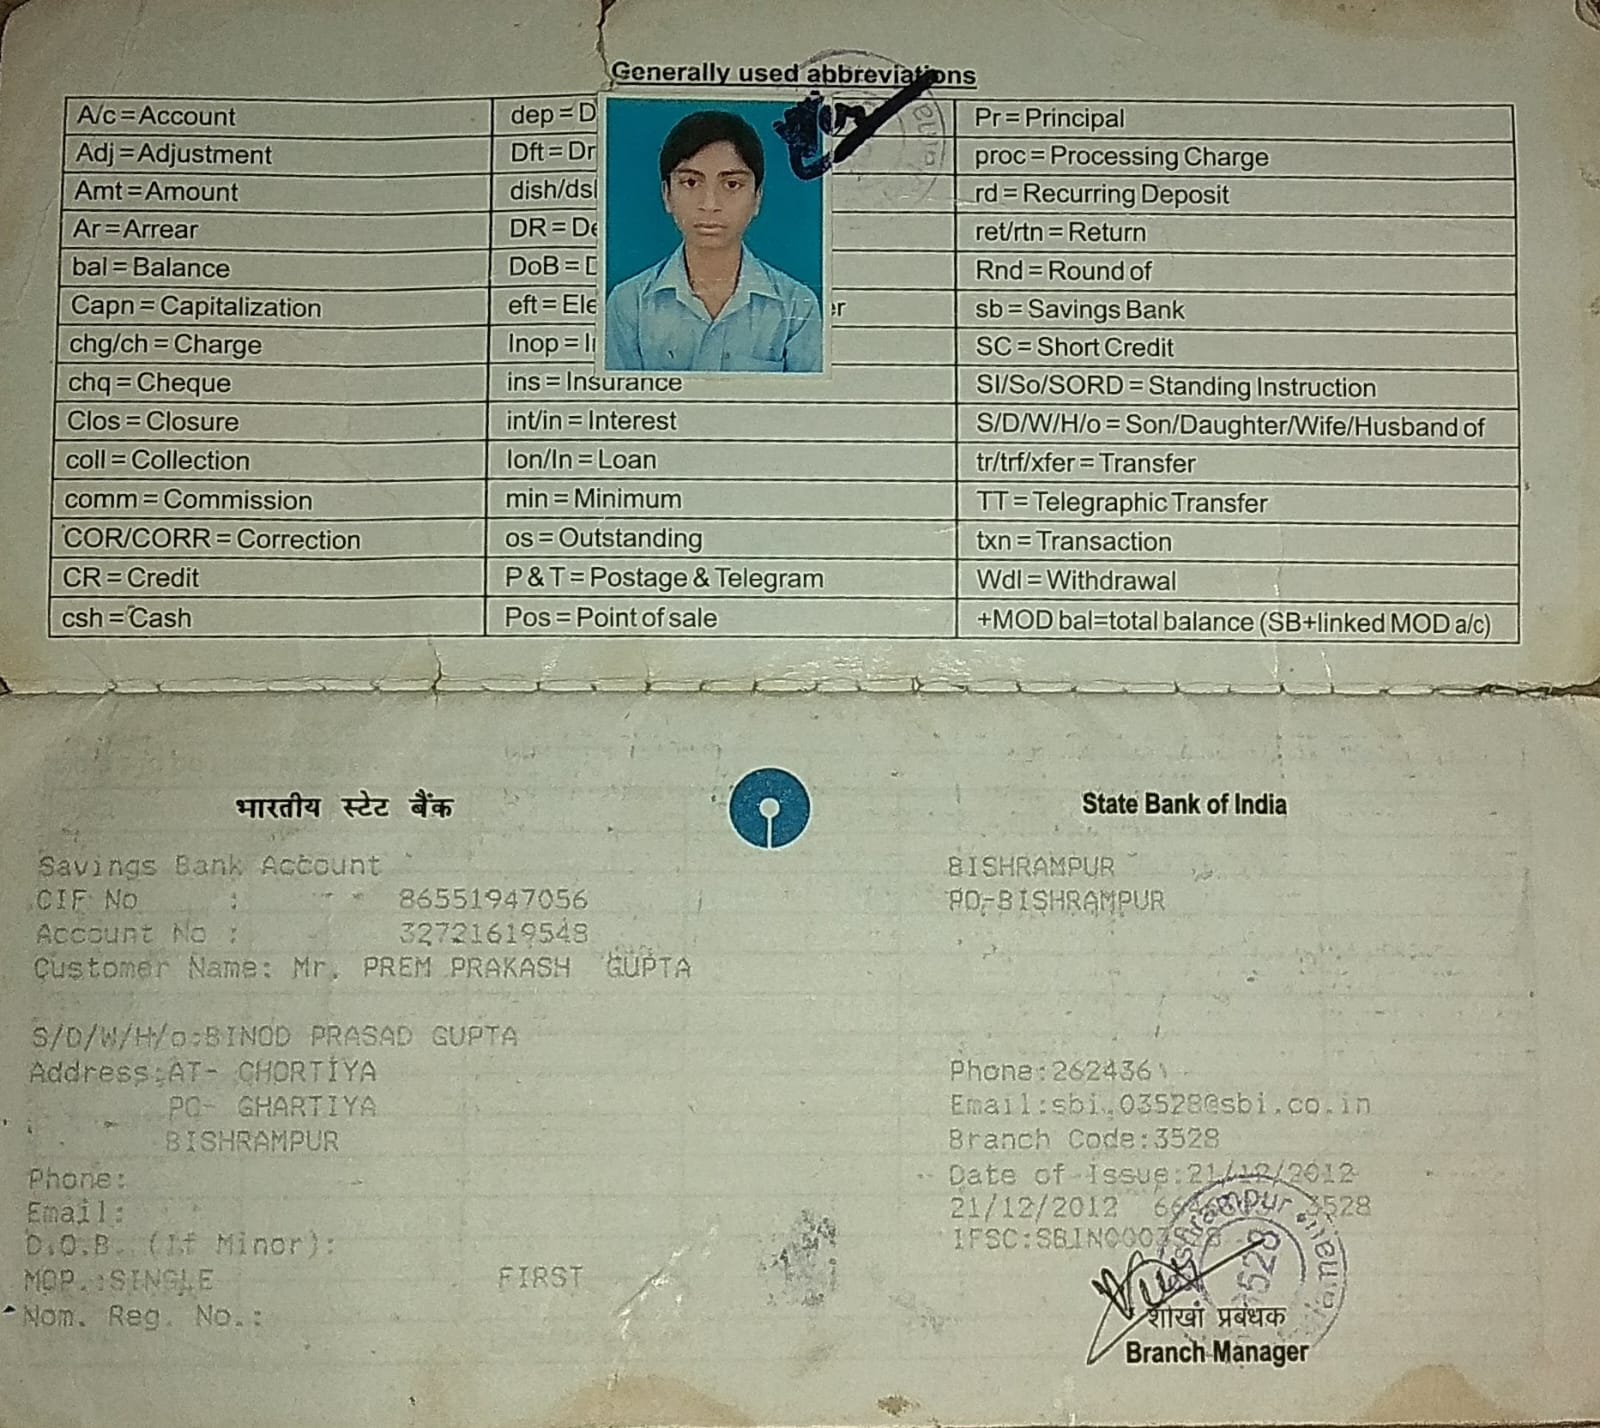 Generally used abbreviations
A/c=Account
Adj=Adjustment
Amt=Amount
Ar=Arrear
bal=Balance
Capn=Capitalization
chg/ch=Charge
chq=Cheque
Clos=Closure
coll=Collection
comm=Commission
COR/CORR=Correction
CR=Credit
csh=Cash
dep=D
Dft=Dr
dish/dsl
DR=De
DoB=D
eft=Ele er
Inop=I
ins=Insurance
int/in=Interest
lon/ln=Loan
min=Minimum
os=Outstanding
P&T=Postage&Telegram
Pos=Point of sale
Pr=Principal
proc=Processing Charge
rd=Recurring Deposit
ret/rtn=Return
Rnd=Round of
sb=Savings Bank
SC=Short Credit
SI/So/SORD=Standing Instruction
S/D/W/H/o=Son/Daughter/Wife/Husband of
tr/trf/xfer=Transfer
TT=Telegraphic Transfer
txn=Transaction
Wdl=Withdrawal
+MOD bal=total balance (SB+linked MOD a/c)
भारतीय स्टेट बैंक
State Bank of India
Savings Bank Account
CIF No : 86551947056
Account No : 32721619548
Customer Name: Mr. PREM PRAKASH GUPTA
S/D/W/H/o:BINOD PRASAD GUPTA
Address:AT- CHORTIYA
PO- GHARTIYA
BISHRAMPUR
Phone:
Email:
D.O.B. (If Minor):
MOP.:SINGLE FIRST
Nom. Reg. No.:
BISHRAMPUR
PO-BISHRAMPUR
Phone:262436
Email:sbi.03528@sbi.co.in
Branch Code:3528
Date of Issue:21/12/2012
21/12/2012 3528
शाखा प्रबंधक
Branch Manager